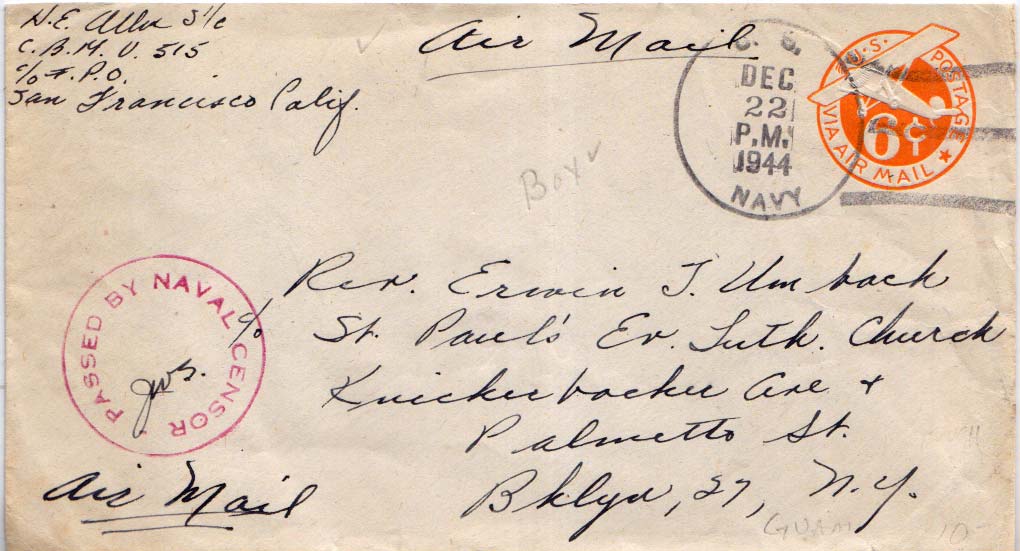 H.E. Allen S1/c
C.B.M.U. 515
c/o F.P.O.
San Francisco Calif.
Air Mail
U.S.
DEC
22
P.M.
1944
NAVY
U.S. POSTAGE
6¢
VIA AIR MAIL
Box
Rev. Erwin J. Umbach
c/o St. Paul's Ev. Luth. Church
Knickerbocker Ave +
Palmetto St.
Bklyn, 27, N.Y.
PASSED BY NAVAL CENSOR
Air Mail
GUAM
10-